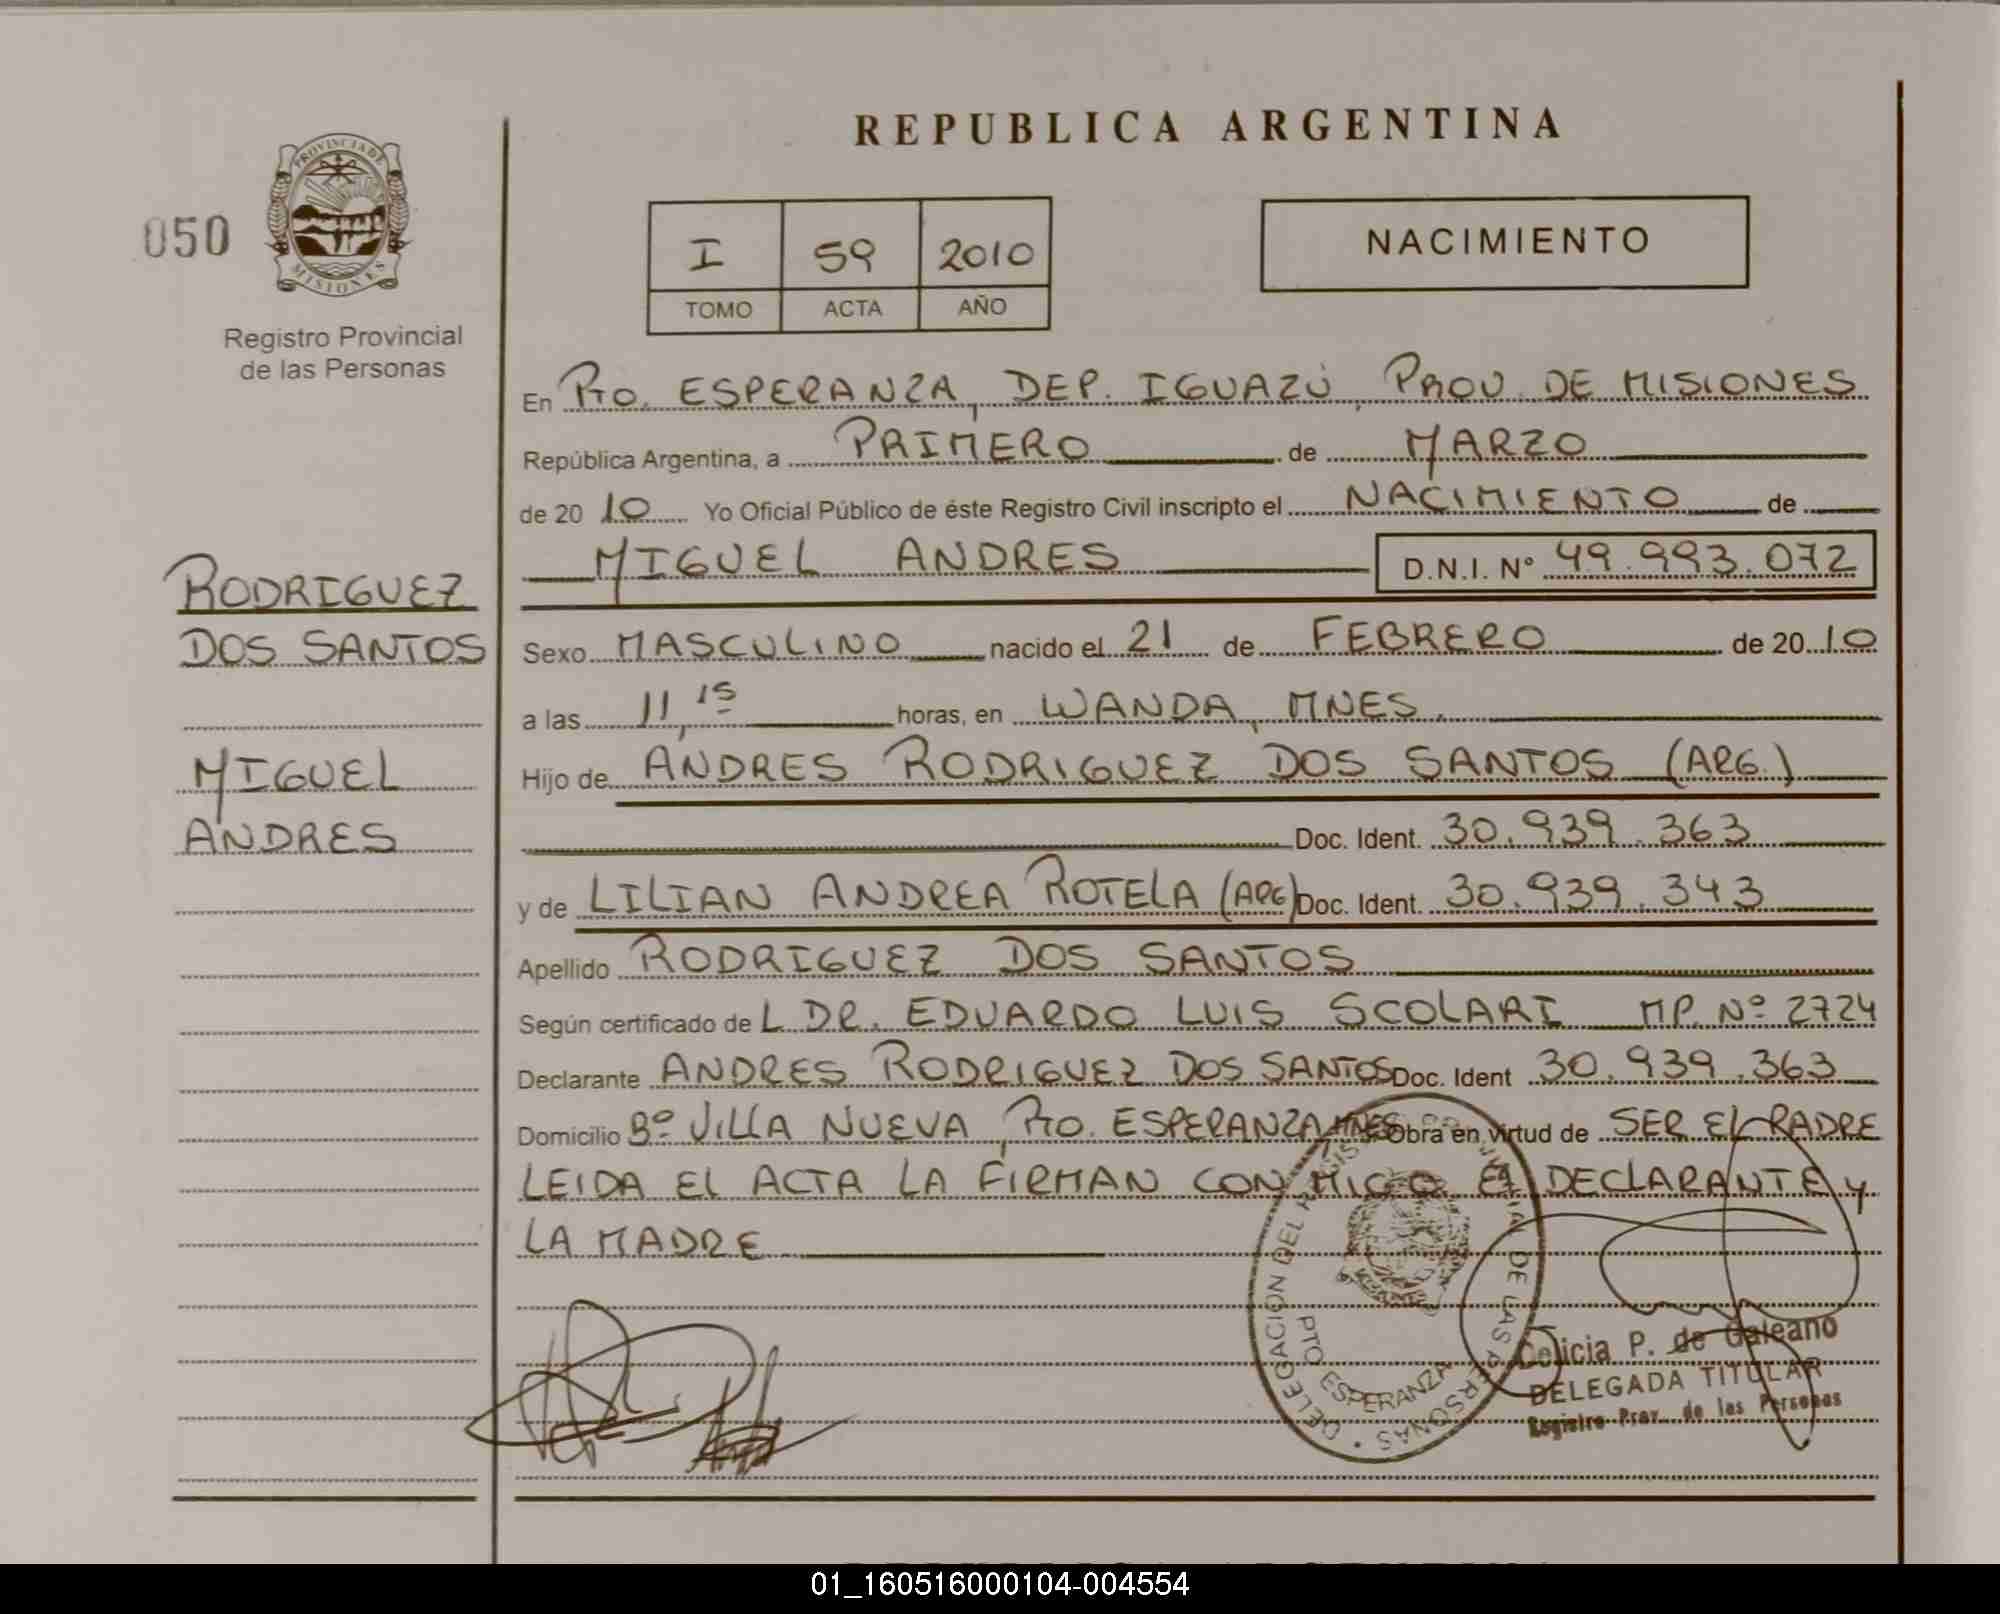 REPUBLICA ARGENTINA
050
PROVINCIA DE MISIONES
Registro Provincial
de las Personas
I 59 2010
TOMO ACTA AÑO
NACIMIENTO
En Pto. ESPERANZA, DEP. IGUAZÚ, PROV. DE MISIONES
República Argentina, a PRIMERO de MARZO
de 2010 Yo Oficial Público de éste Registro Civil inscripto el NACIMIENTO de
MIGUEL ANDRES D.N.I. Nº 49.993.072
RODRIGUEZ
DOS SANTOS
MIGUEL
ANDRES
Sexo MASCULINO nacido el 21 de FEBRERO de 2010
a las 11,15 horas, en WANDA, MNES.
Hijo de ANDRES RODRIGUEZ DOS SANTOS (ARG.)
Doc. Ident. 30.939.363
y de LILIAN ANDREA ROTELA (ARG) Doc. Ident. 30.939.343
Apellido RODRIGUEZ DOS SANTOS
Según certificado de L DR. EDUARDO LUIS SCOLARI MP. Nº 2724
Declarante ANDRES RODRIGUEZ DOS SANTOS Doc. Ident 30.939.363
Domicilio Bº VILLA NUEVA, Pto. ESPERANZA MNES Obra en virtud de SER EL PADRE
LEIDA EL ACTA LA FIRMAN CONMIGO El DECLARANTE y
LA MADRE
DELEGACION DEL DE LAS PERSONAS
PTO ESPERANZA
Delicia P. de Galeano
DELEGADA TITULAR
Registro Prov. de las Personas
01_160516000104-004554